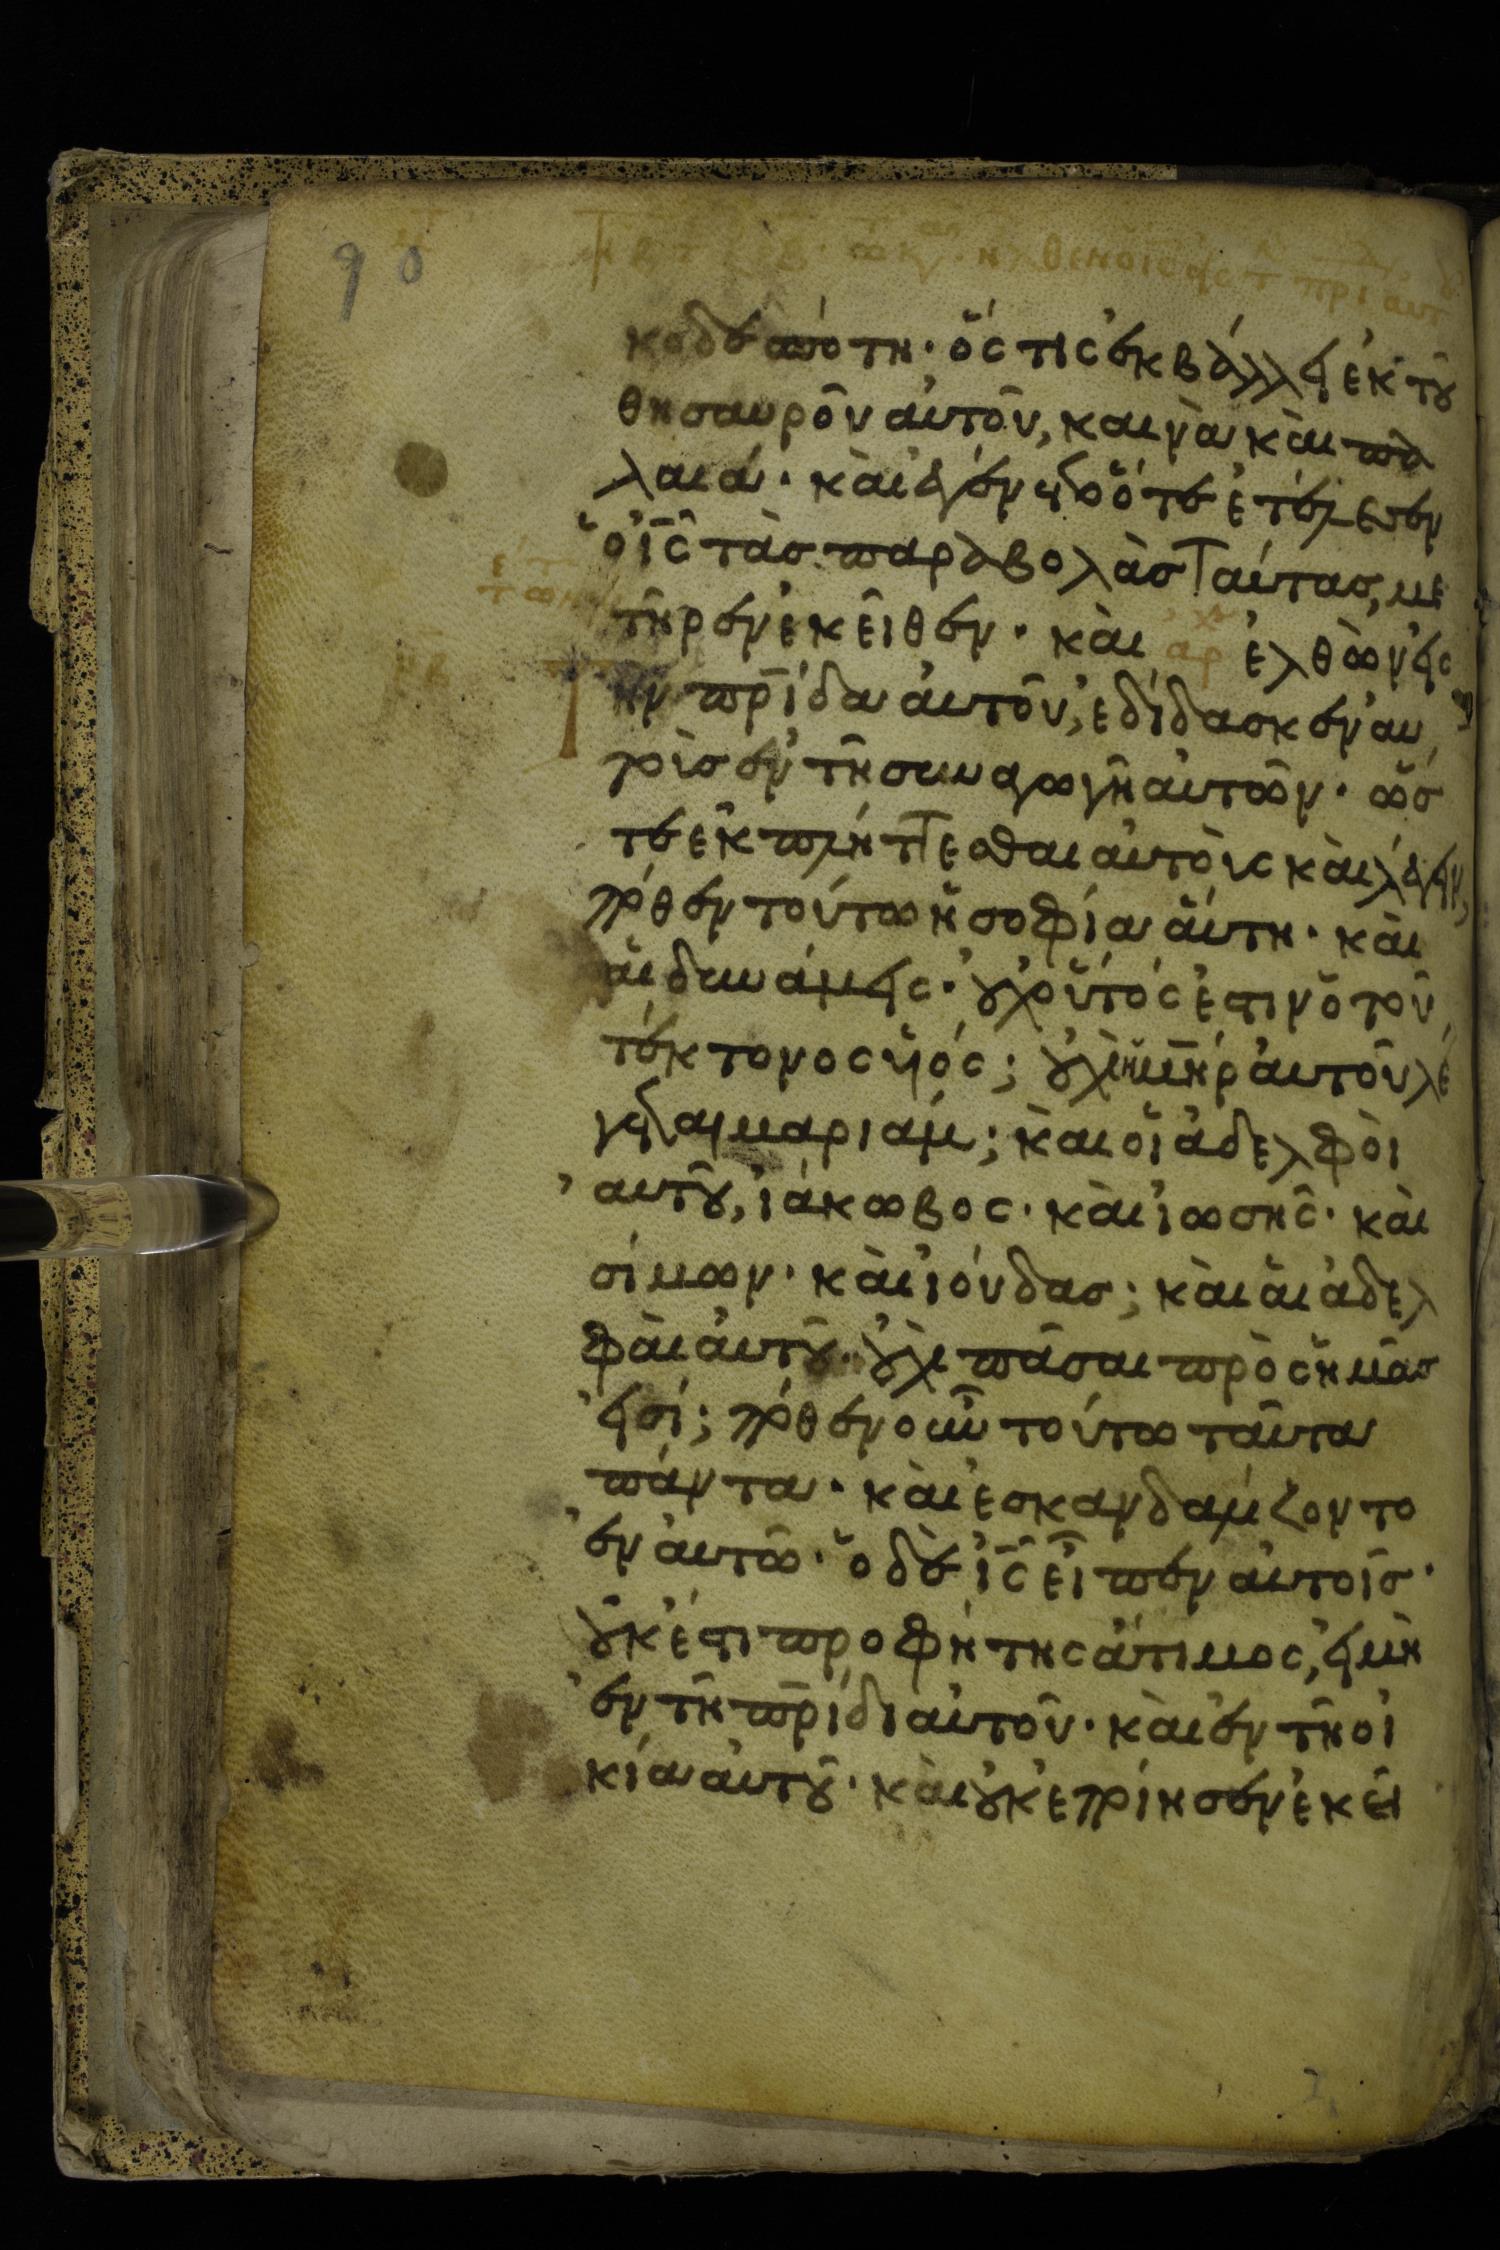 90
κοδεσπότη· ὅστις ἐκβάλλει ἐκ τοῦ
θησαυροῦ αὐτοῦ, καινὰ καὶ πα
λαιά· καὶ ἐγένετο ὅτε ἐτέλεσεν
ὁ ις τὰς παραβολὰς ταύτας, με
τῆρεν ἐκεῖθεν· καὶ αρχ ἐλθὼν εἰς
ην πρίδα αὐτοῦ, ἐδίδασκεν αυ
τοὶς ἐν τῆ συναγωγῆ αὐτῶν· ὥσ
τε ἐκπλήττεσθαι αὐτοὺς καὶ λέγειν,
πόθεν τούτω ἡ σοφία αὕτη· καὶ
αἱ δυνάμεις· οὐχ οὗτός ἐστιν ὁ τοῦ
τέκτονος υἱός; οὐχὶ ἡ μηρ αὐτοῦ λέ
γεται μαριάμ; καὶ οἱ ἀδελφοὶ
αὐτοῦ, ἰάκωβος· καὶ ἰωσῆς· καὶ
σίμων· καὶ ἰούδας; καὶ αἱ ἀδελ
φαὶ αὐτοῦ· οὐχὶ πᾶσαι πρὸς ἡμᾶς
εἰσί; πόθεν οὖν τούτω ταῦτα
πάντα· καὶ ἐσκανδαλίζοντο
ἐν αὐτῶ· ὁ δὲ ις εἶπεν αὐτοῖς·
οὐκ ἔστι προφήτης ἄτιμος, εἰ μὴ
ἐν τῆ πρίδι αὐτοῦ· καὶ ἐν τῆ οἰ
κία αὐτοῦ· καὶ οὐκ ἐποίησεν ἐκεῖ